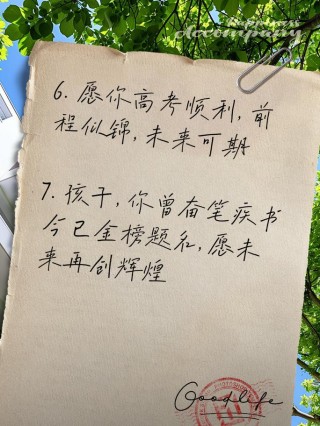 happiness
accompany
6. 愿你高考顺利,前
程似锦,未来可期
7. 孩子,你曾奋笔疾书
今已金榜题名,愿未
来再创辉煌
Goodlife